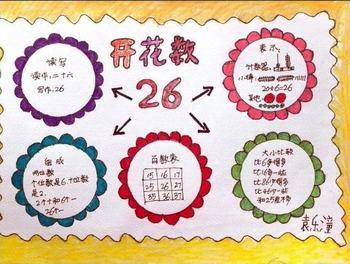 开花数
26
读写
读作:二十六
写作:26
表示
计数器:
小棒:
20+6=26
其他:
组成
两位数
个位数是6,十位数
是2.
2个十和6个一
26个一
百数表
15 16 17
25 26 27
35 36 37
大小比较
比6多得多
比16多一些
比86少得多
比36少一些
和25差不多
袁乐潼